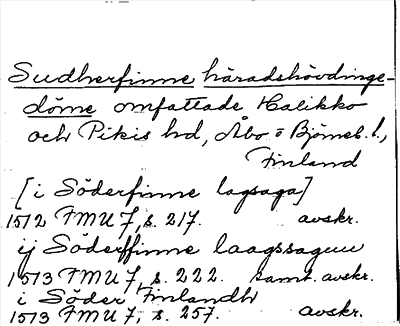 Sudherfinne häradshövdinge-
döme omfattade Halikko
och Pikis hd, Åbo o Björneb. l.,
Finland
[i Söderfinne lagsaga]
1512 FMU 7, s. 217. avskr.
ij Söderffinne laagssaguu
1513 FMU 7, s. 222. samt. avskr.
i Söder Finlandh
1513 FMU 7, s. 257. avskr.